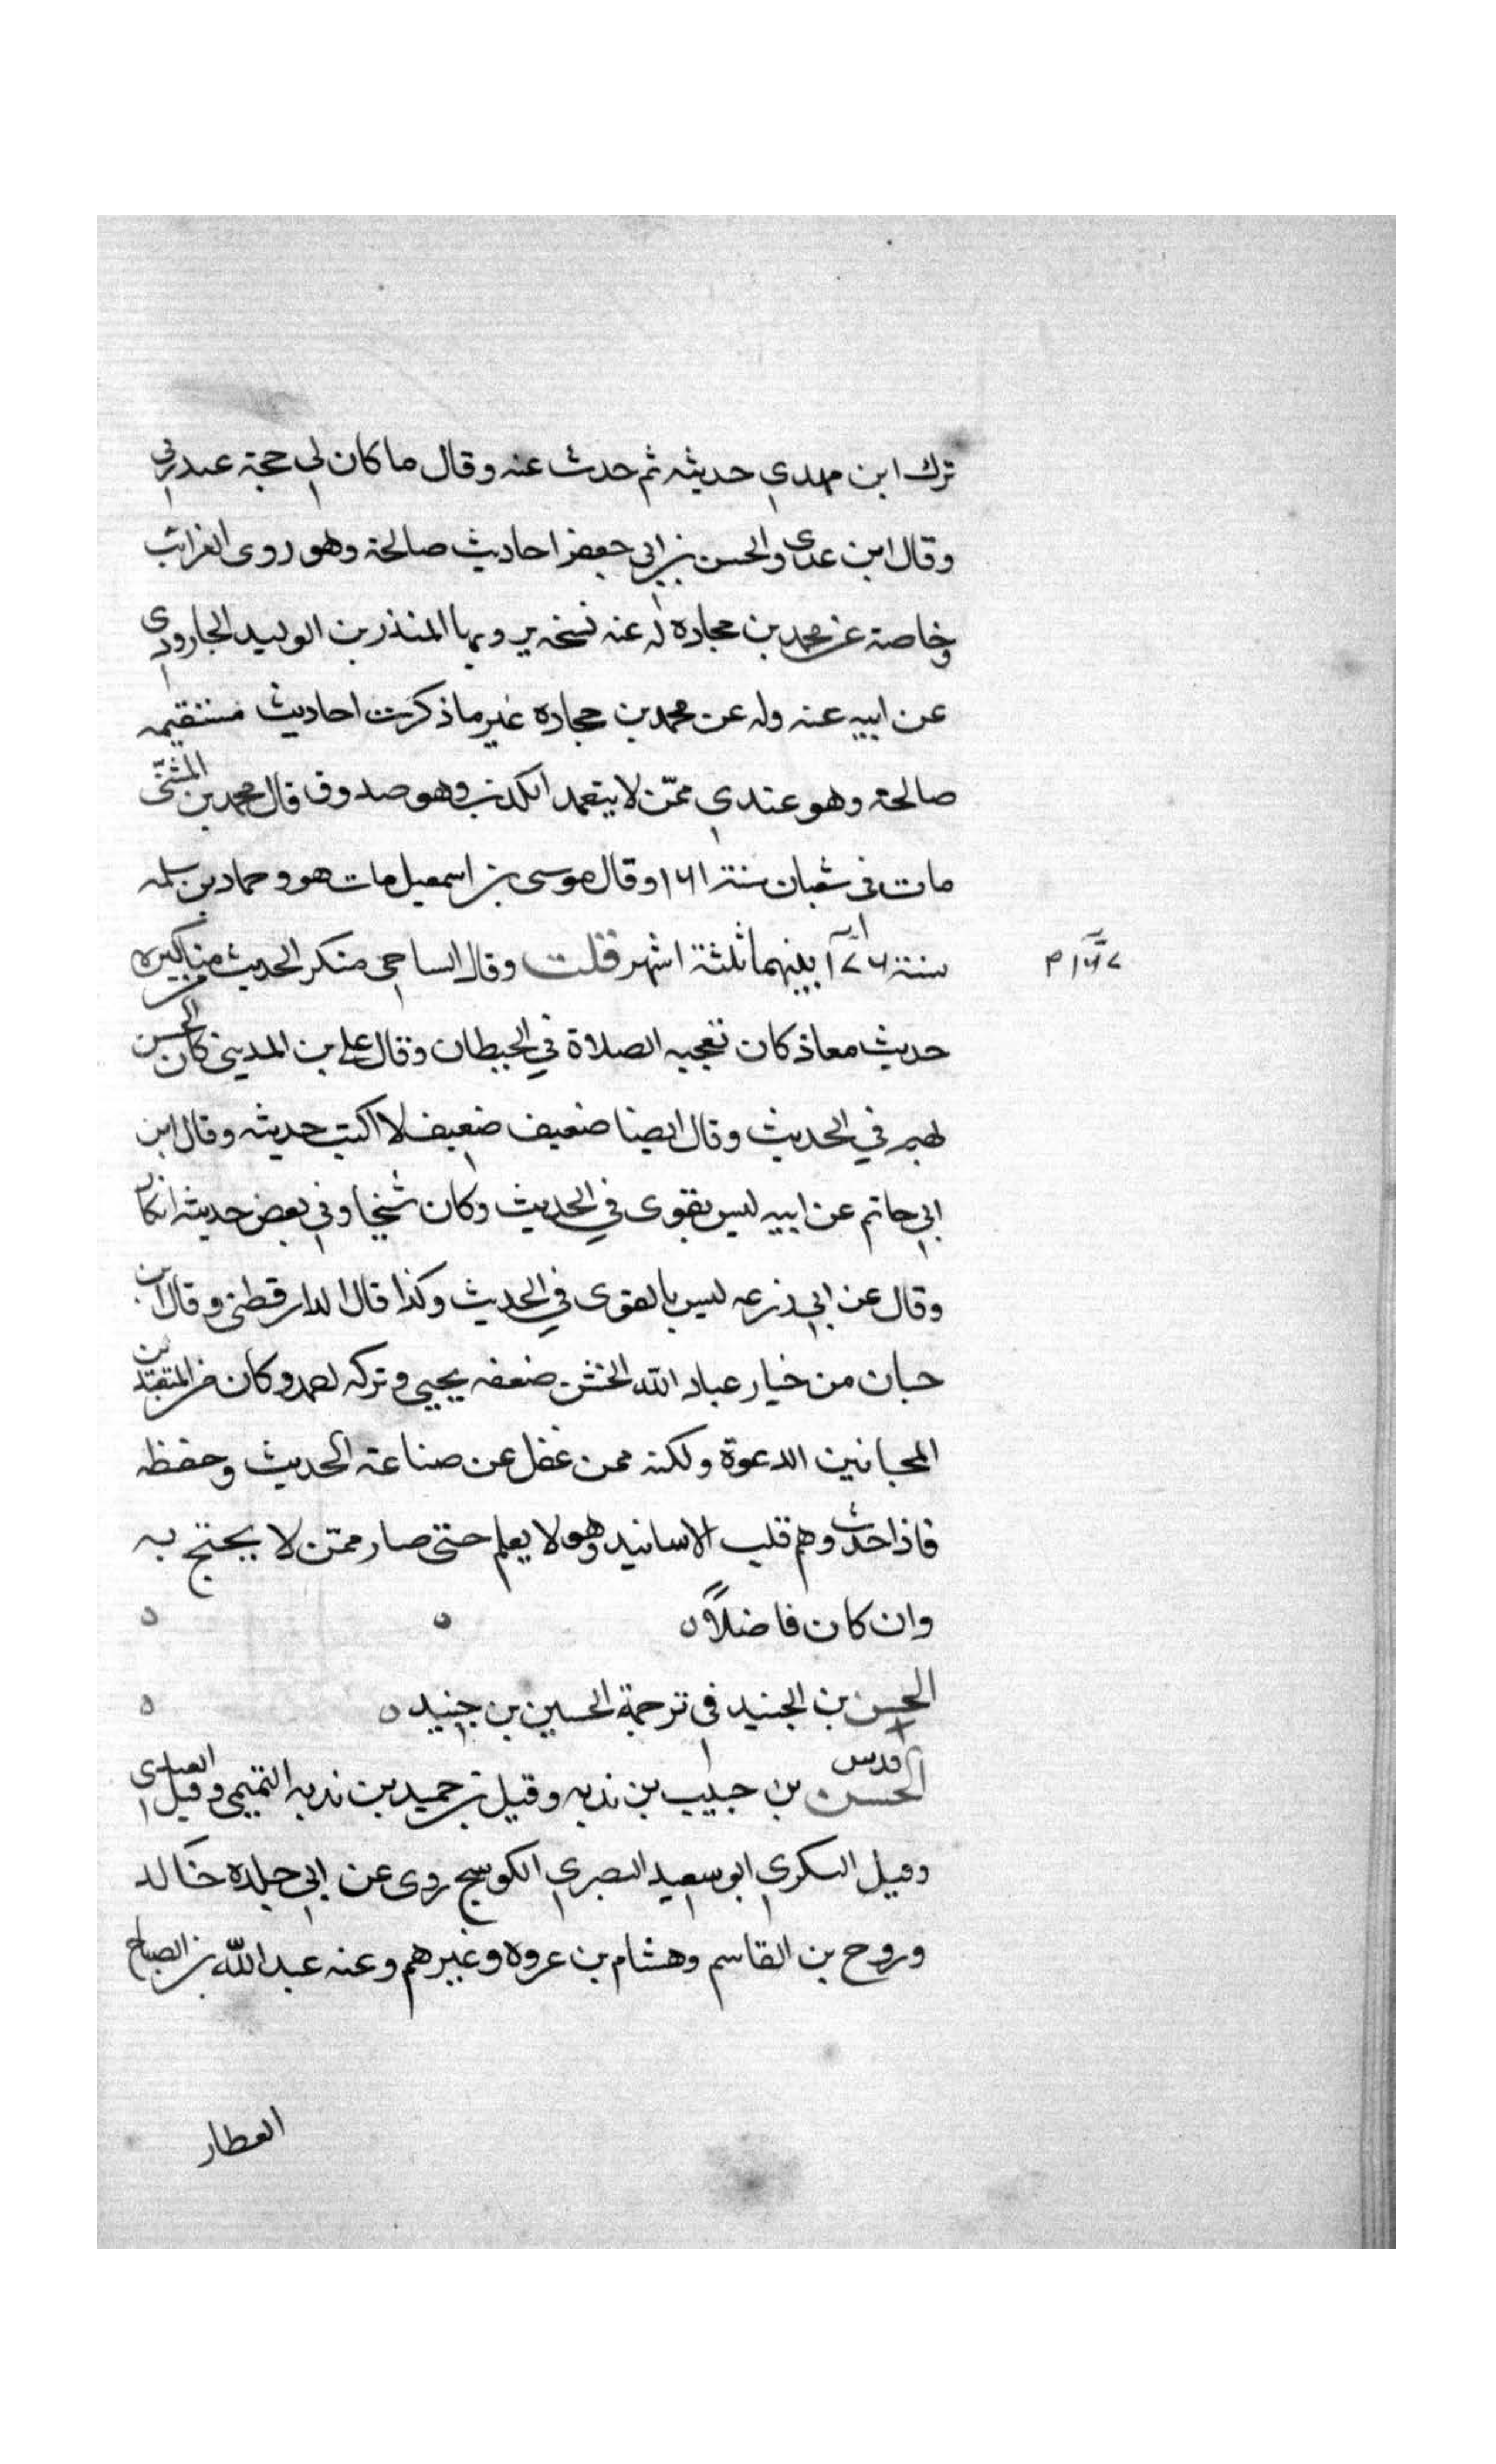 ترك ابن مهدي حديثه ثم حدث عنه وقال ما كان لي حجة عند ربي
وقال ابن عدى والحسن بن ابي جعفر احاديث صالحة وهو روى الغرائب
وخاصة عن محمد بن حجاده له عنه نسخه يرويها المنذر بن الوليد الجارودي
عن ابيه عنه وله عن محمد بن حجاده غير ما ذكرت احاديث مستقيمه
صالحة وهو عندي ممن لا يتعمد الكذب وهو صدوق قال محمد بن المثنى
مات في شعبان سنة ١٦١ وقال موسى بن اسمعيل مات هو وحماد بن سلمه
سنة بينهما ثلثة اشهر قلت وقال الساجي منكر الحديث من مناكيره
١٦٧ م
حديث معاذ كان تعجبه الصلاة في الحيطان وقال علي بن المديني كان الحسن
يهم في الحديث وقال ايضا ضعيف ضعيف لا اكتب حديثه وقال ابن
ابي حاتم عن ابيه ليس بقوى في الحديث وكان شيخا وفي بعض حديثه انكار
وقال عن ابي زرعه ليس بالقوى في الحديث وكذا قال الدارقطني وقال ابن
حبان من خيار عباد الله الخشن ضعفه يحيى وتركه احمد وكان من المتعبدين
المجابين الدعوة ولكنه ممن غفل عن صناعة الحديث وحفظه
فاذا حدث وهم قلب الاسانيد وهو لا يعلم حتى صار ممن لا يحتج به
وان كان فاضلاً ه
الحسن بن الجنيد في ترجمة الحسين بن جنيد ه
قدس
الحسن بن حبيب بن ندبه وقيل بن حميد بن ندبه التميمي وقيل العبدي
وقيل السكري ابو سعيد البصري الكوسج روى عن ابي خلده خالد
وروح بن القاسم وهشام بن عروه وغيرهم وعنه عبد الله بن الصباح
العطار